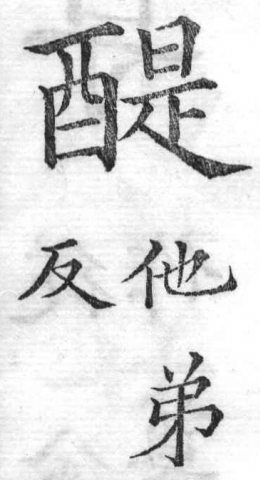 醍
他弟
反